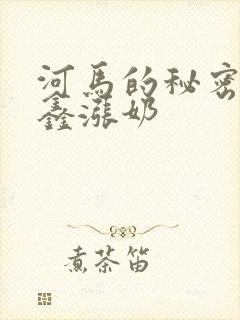 河马的秘密
鑫涨奶
煮茶笛